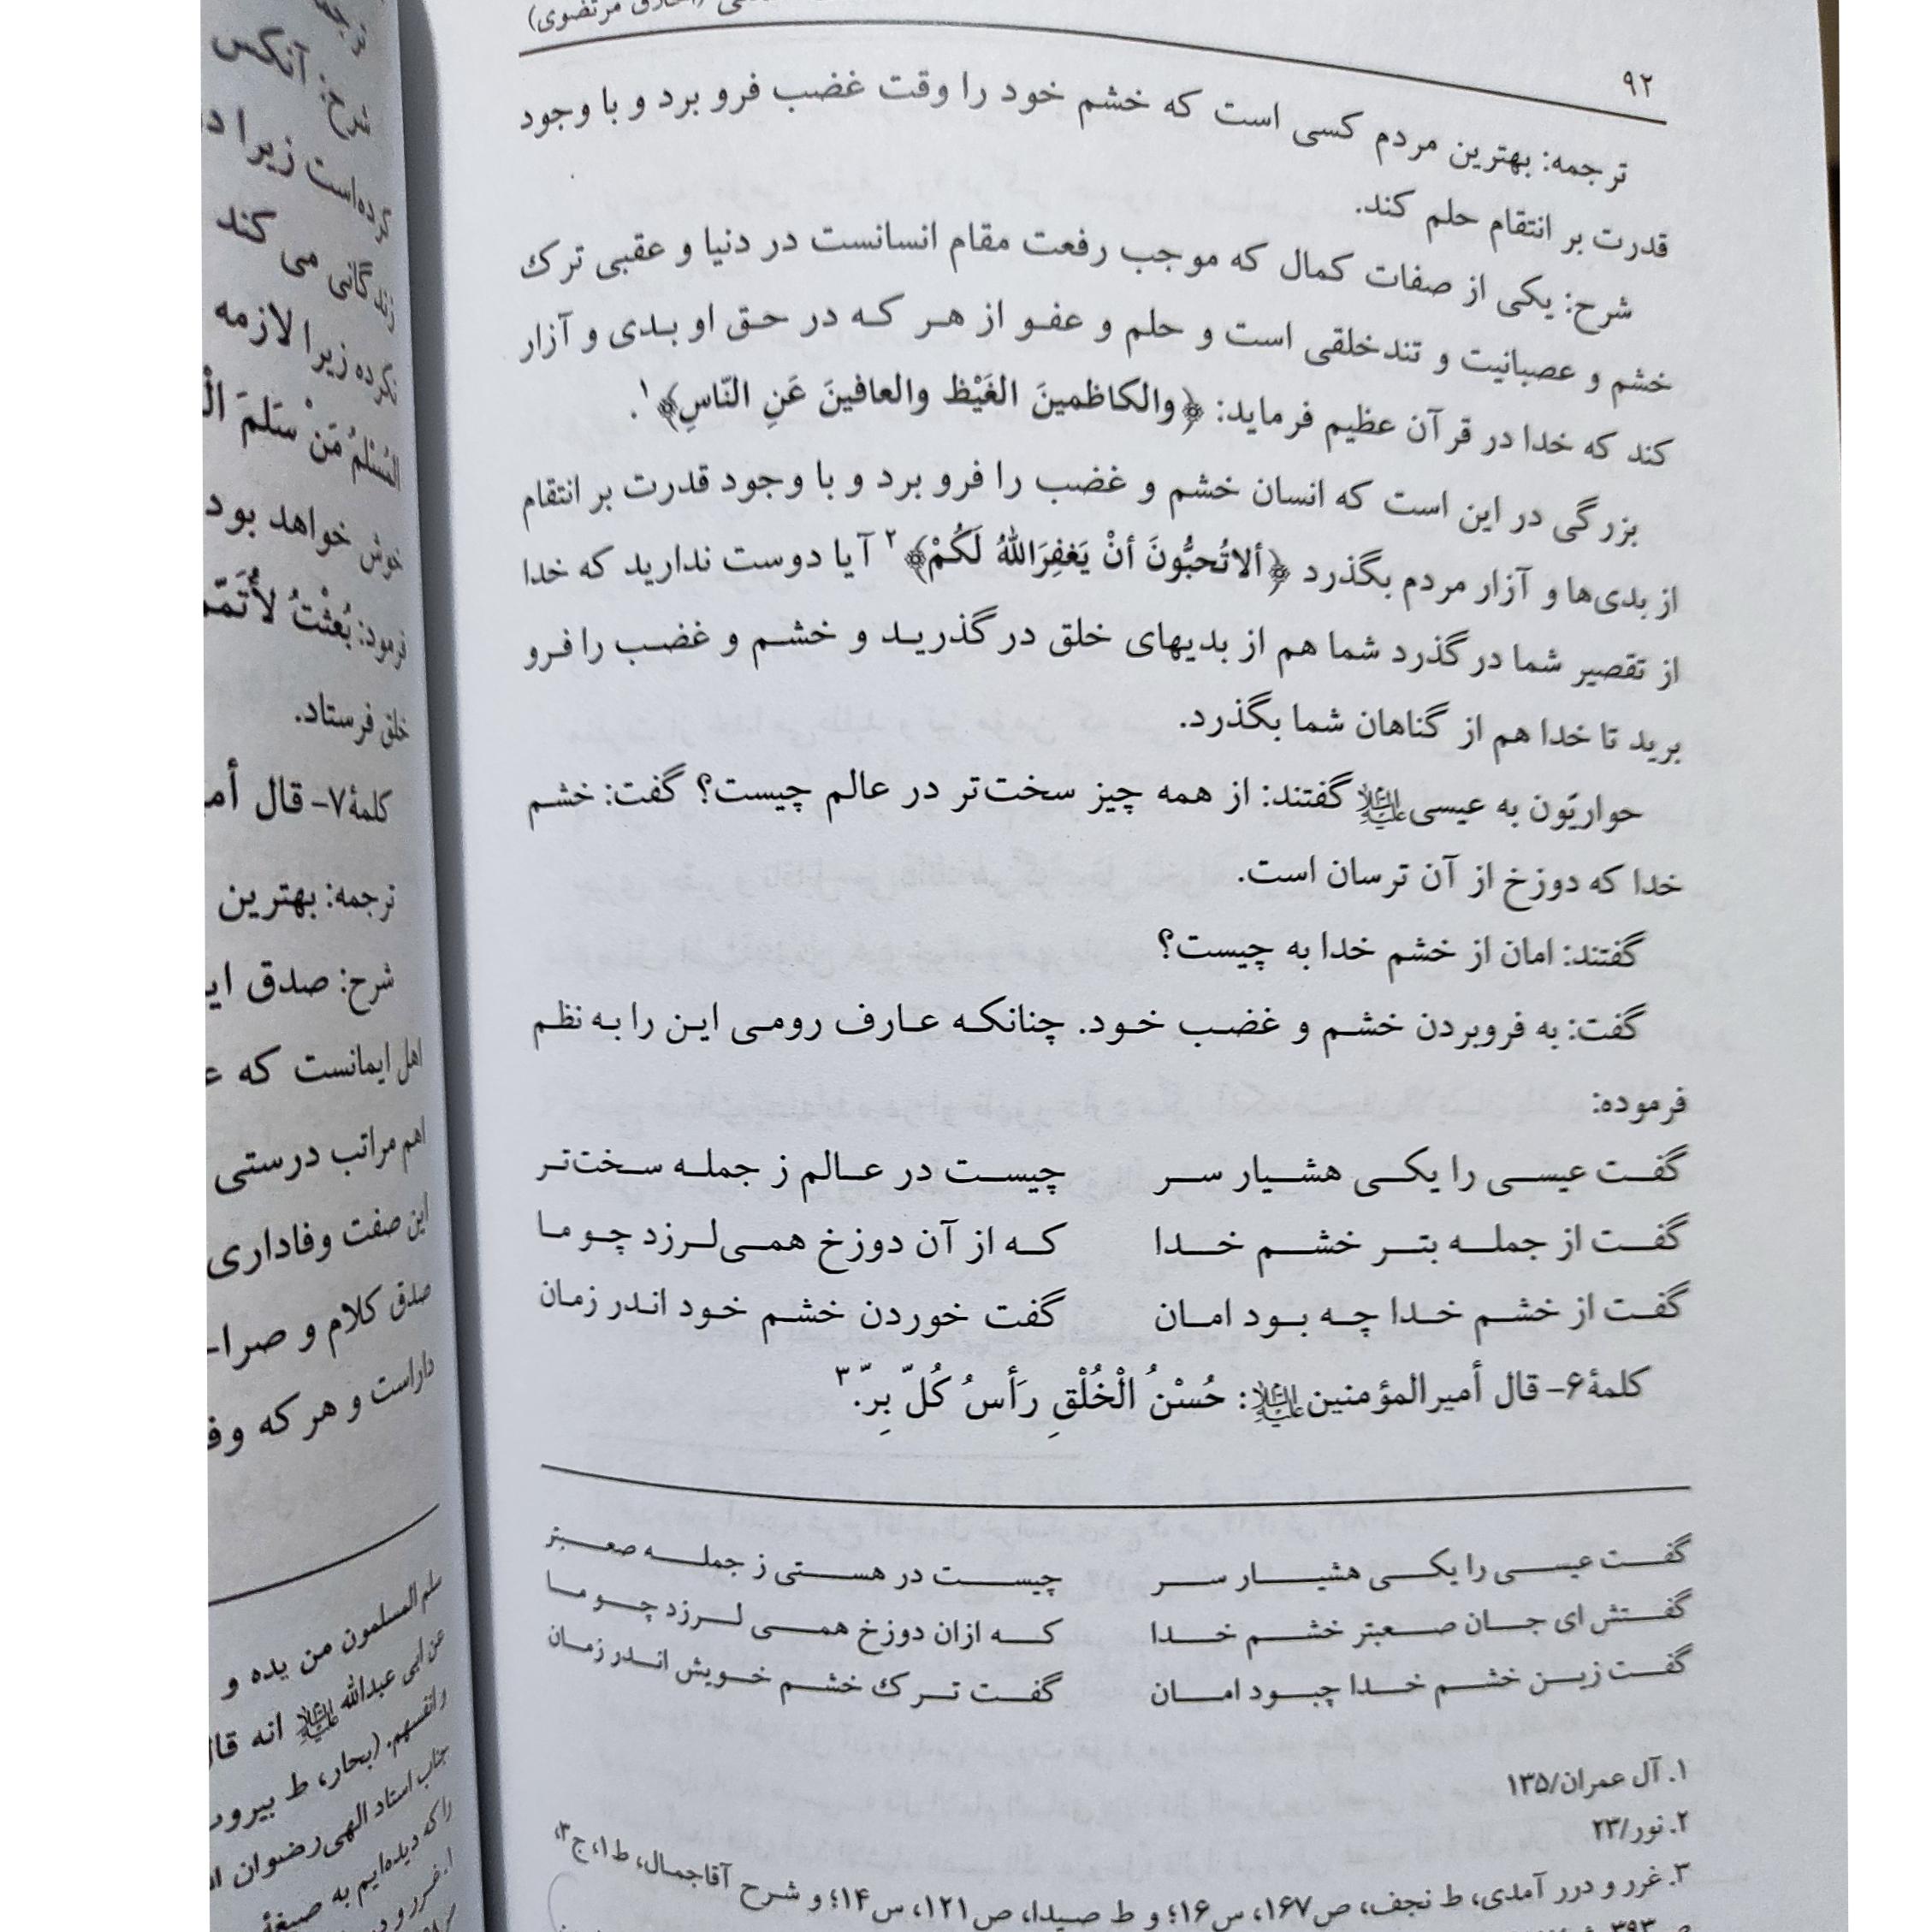 (اخلاق مرتضوی)
۹۲
ترجمه: بهترین مردم کسی است که خشم خود را وقت غضب فرو برد و با وجود
قدرت بر انتقام حلم کند.
شرح: یکی از صفات کمال که موجب رفعت مقام انسانست در دنیا و عقبی ترک
خشم و عصبانیت و تندخلقی است و حلم و عفو از هر که در حق او بدی و آزار
کند که خدا در قرآن عظیم فرماید: ﴿والکاظمینَ الغَیْظ والعافینَ عَنِ النّاسِ﴾۱.
بزرگی در این است که انسان خشم و غضب را فرو برد و با وجود قدرت بر انتقام
از بدی‌ها و آزار مردم بگذرد ﴿ألاتُحبُّونَ أنْ یَغفِرَاللهُ لَکُمْ﴾۲ آیا دوست ندارید که خدا
از تقصیر شما درگذرد شما هم از بدیهای خلق درگذرید و خشم و غضب را فرو
برید تا خدا هم از گناهان شما بگذرد.
حواریّون به عیسی علیه‌السلام گفتند: از همه چیز سخت‌تر در عالم چیست؟ گفت: خشم
خدا که دوزخ از آن ترسان است.
گفتند: امان از خشم خدا به چیست؟
گفت: به فروبردن خشم و غضب خود. چنانکه عارف رومی این را به نظم
فرموده:
گفت عیسی را یکی هشیار سر چیست در عالم ز جمله سخت‌تر
گفت از جمله بتر خشم خدا که از آن دوزخ همی‌لرزد چو ما
گفت از خشم خدا چه بود امان گفت خوردن خشم خود اندر زمان
کلمهٔ ۶- قال أمیرالمؤمنین علیه‌السلام: حُسْنُ الْخُلْقِ رَأسُ کُلّ بِرّ.۳
گفت عیسی را یکی هشیار سر چیست در هستی ز جمله صعبتر
گفتش ای جان صعبتر خشم خدا که ازان دوزخ همی لرزد چو ما
گفت زین خشم خدا چبود امان گفت ترک خشم خویش اندر زمان
۱. آل عمران/۱۳۵
۲. نور/۲۳
۳. غرر و درر آمدی، ط نجف، ص۱۶۷، س۱۶؛ و ط صیدا، ص۱۲۱، س۱۴؛ و شرح آقاجمال، ط۱، ج۳،
ص۳۹۳
شرح: آنکس
کرده‌است زیرا
زندگانی می کند
نکرده زیرا لازمه
المُسْلمُ مَنْ سَلمَ
خوش خواهد بود
فرمود: بُعثْتُ لأُتَمّ
خلق فرستاد.
کلمهٔ ۷- قال
ترجمه: بهترین
شرح: صدق
اهل ایمانست که
اهم مراتب درستی
این صفت وفاداری
صدق کلام و
داراست و هر که
سلم المسلمون من یده و
عن ابی عبدالله علیه‌السلام انه
وانفسهم. (بحار، ط
جناب استاد الهی رضوان
را که دیده‌ایم به صیغهٔ
۱. غرر و